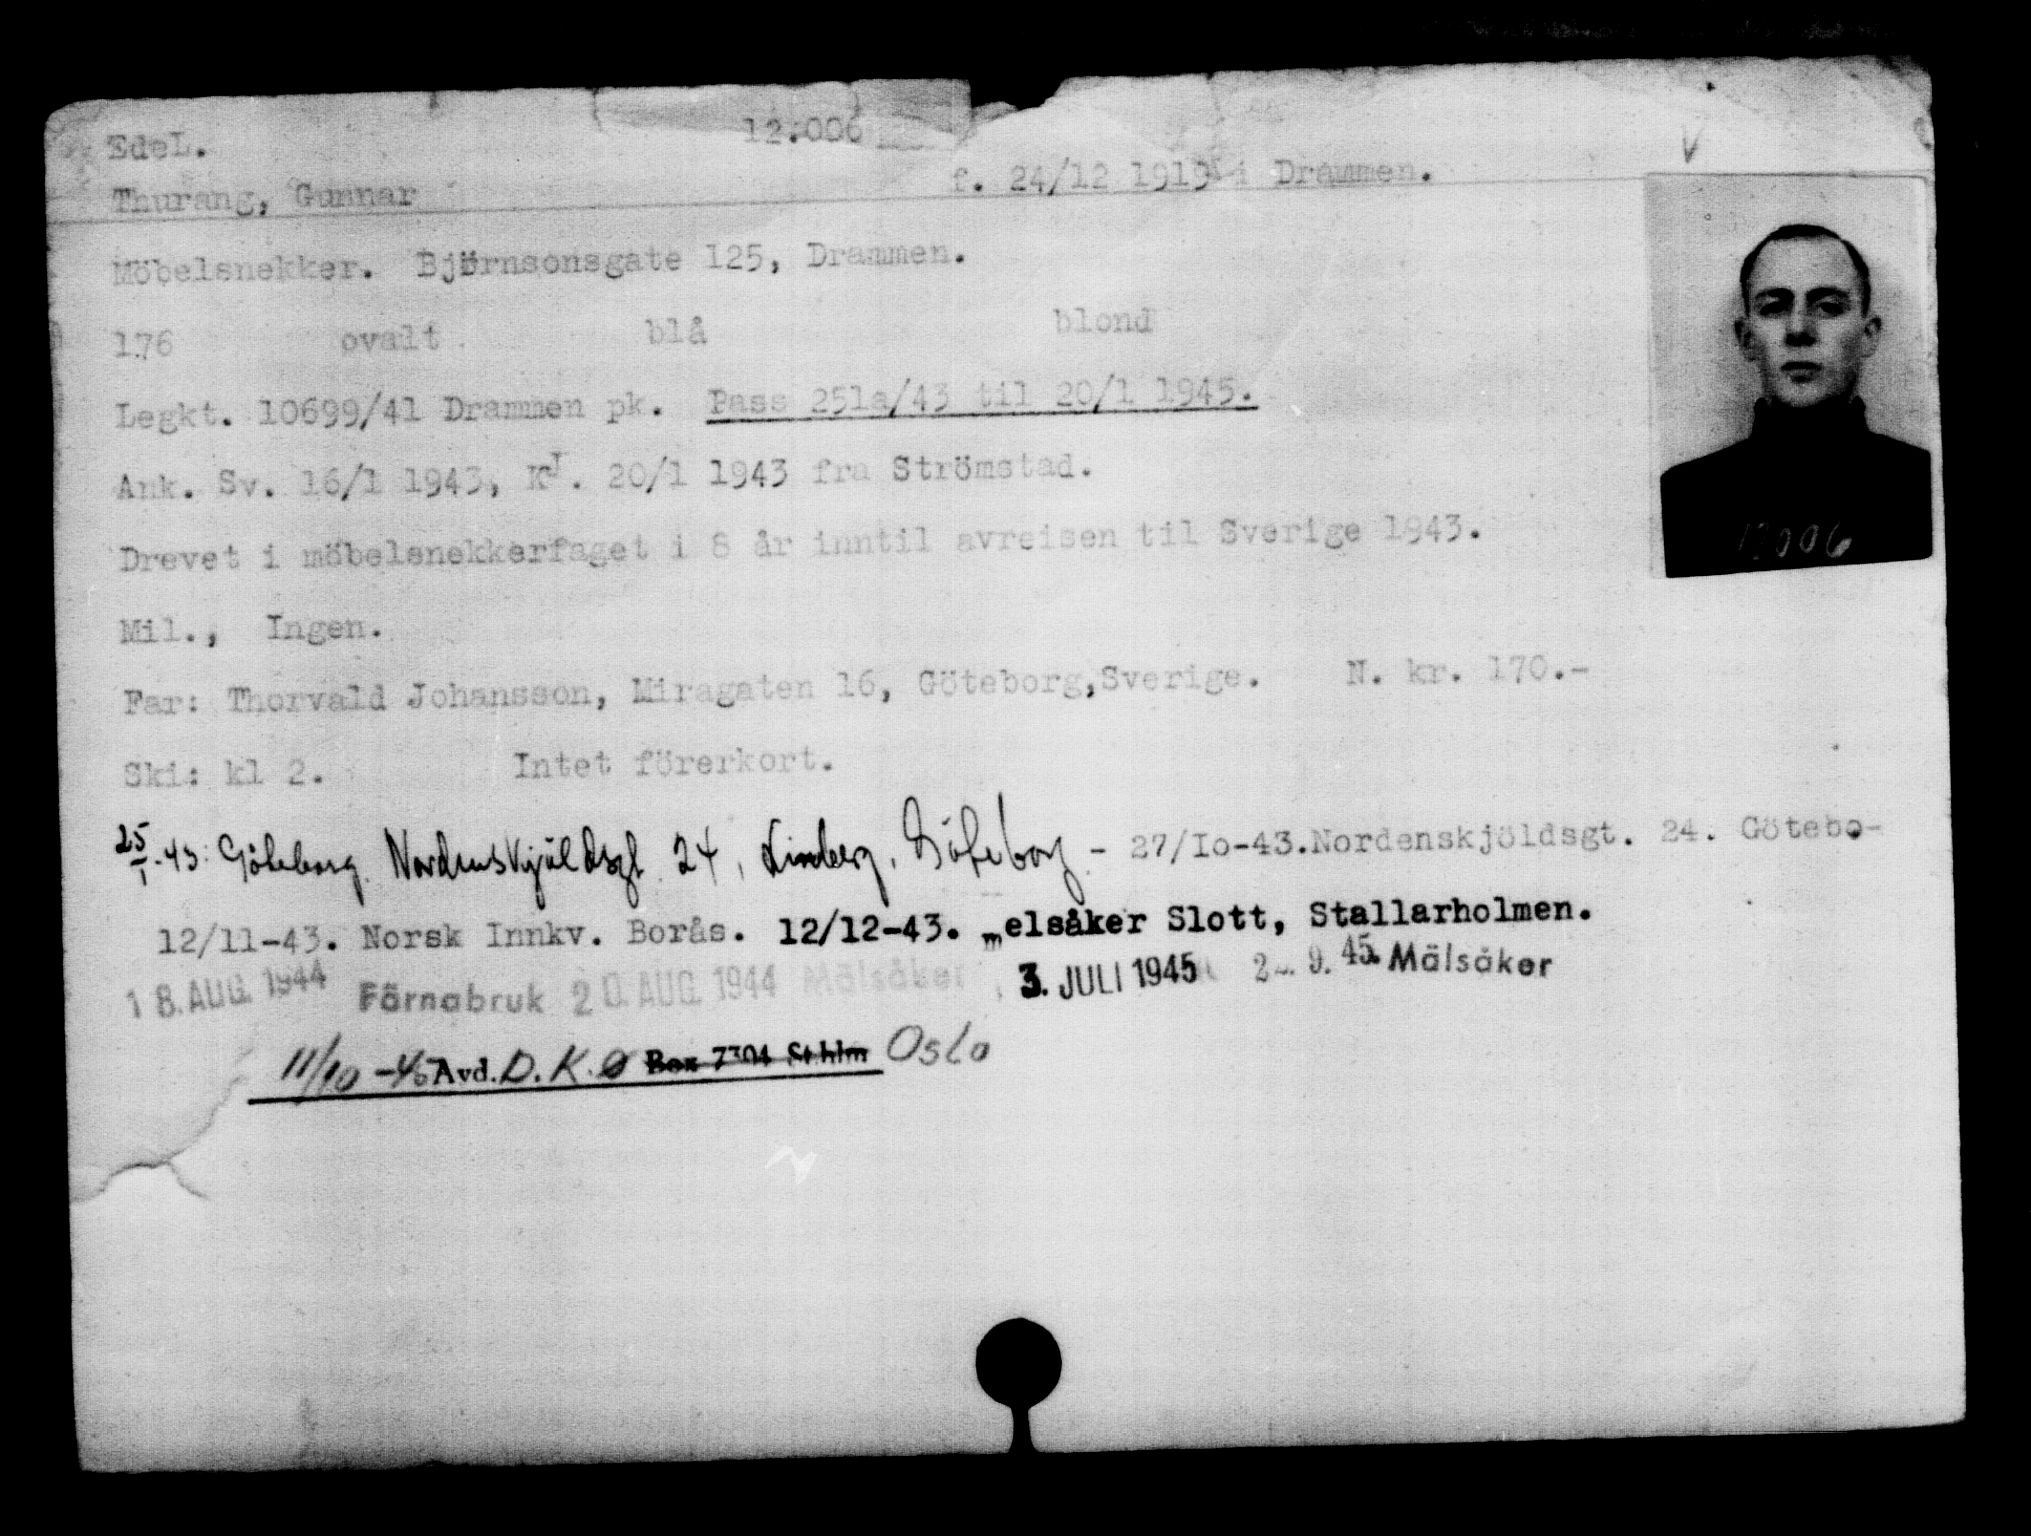 EdeL. 12.006 V
Thurang, Gunnar f. 24/12 1919 i Drammen.
Möbelsnekker. Björnsonsgate 125, Drammen.
176 ovalt blå blond
Legkt. 10699/41 Drammen pk. Pass 251a/43 til 20/1 1945.
Ank. Sv. 16/1 1943, KJ. 20/1 1943 fra Strömstad.
12006
Drevet i möbelsnekkerfaget i 8 år inntil avreisen til Sverige 1943.
Mil., Ingen.
Far: Thorvald Johansson, Miragaten 16, Göteborg,Sverige. N. kr. 170.-
Ski: kl 2. Intet förerkort.
25/1-43: Göteborg. Nordenskjöldsgt 24, Göteborg - 27/Io-43.Nordenskjöldsgt. 24. Götebo-
12/11-43. Norsk Innkv. Borås. 12/12-43. melsåker Slott, Stallarholmen.
18. AUG. 1944 Färnabruk 20. AUG. 1944 Mälsåker 3. JULI 1945 2. 9. 45. Mälsåker
11/10-45 Avd. D.K.Ø Box 7304 Sthlm Oslo